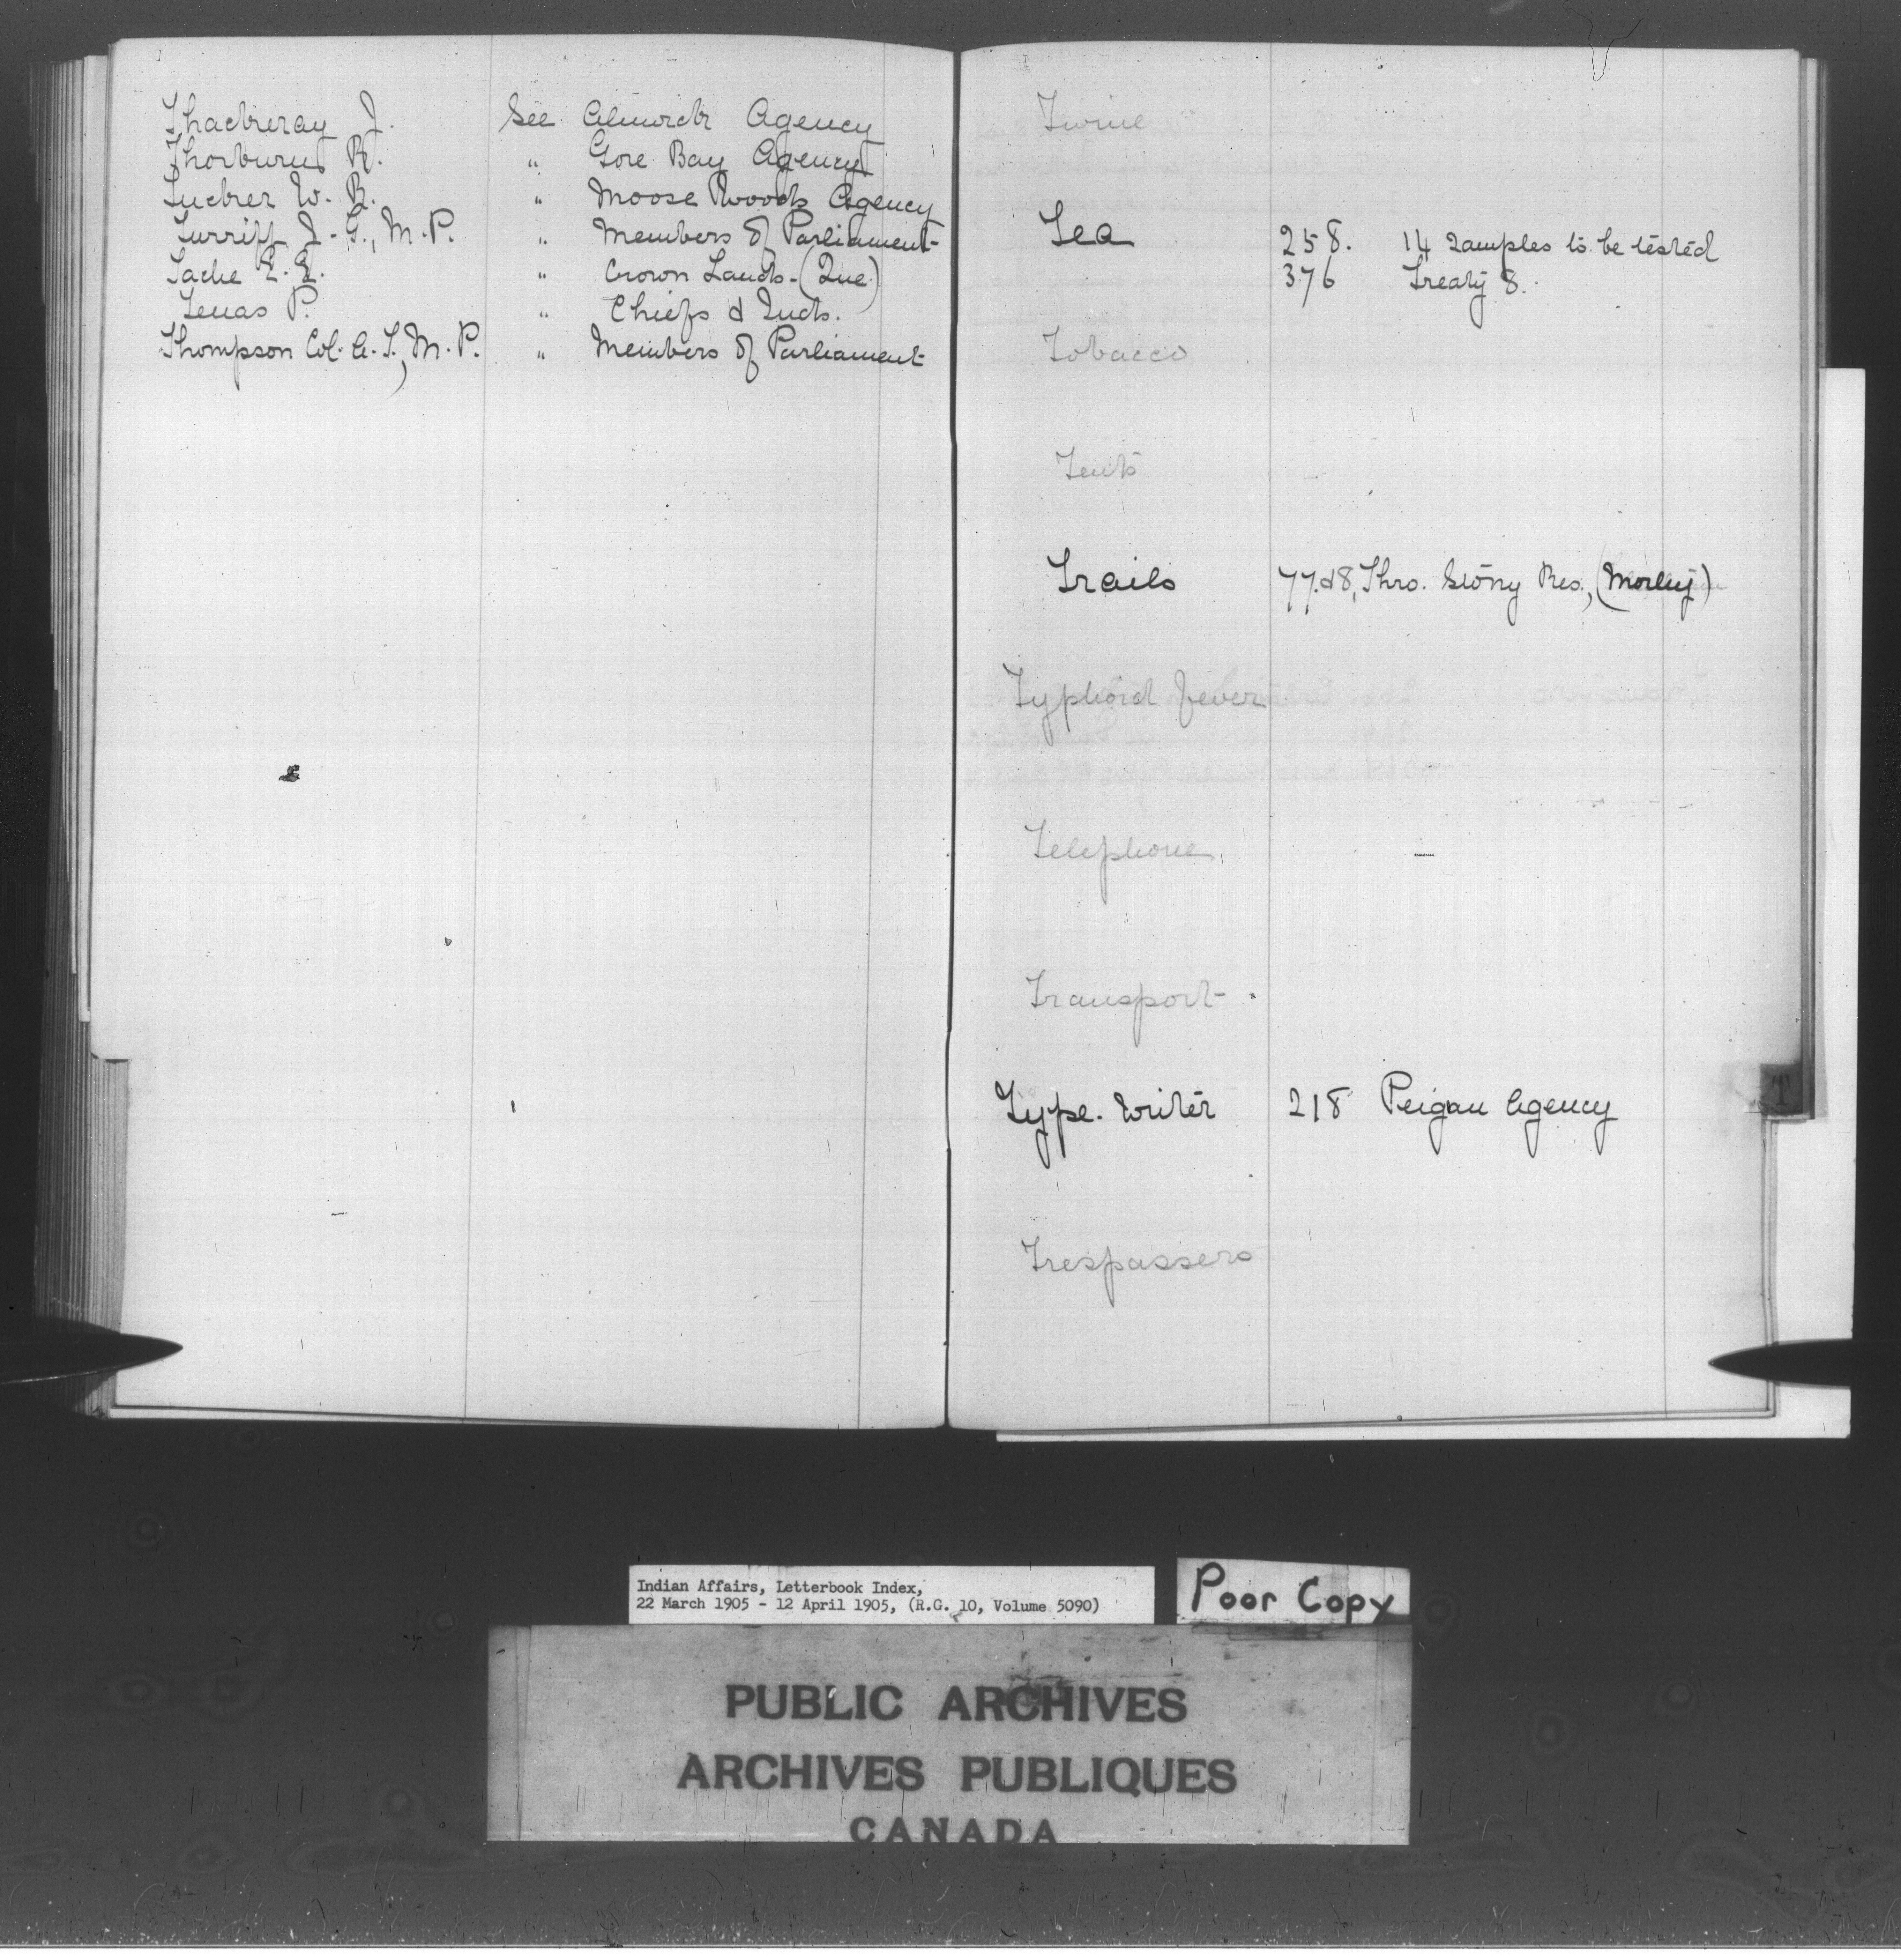 Thackeray J. See Alnwick Agency
Thorburn R. " Gore Bay Agency
Tucker W. R. " Moose Woods Agency
Turriff J. G., M.P. " Members of Parliament
Tache E. E. " Crown Lands (Que)
Tenas P. " Chiefs & Inds.
Thompson Col. A. T., M.P. " Members of Parliament
Twine
Tea 258. 14 samples to be tested
376 Treaty 8.
Tobacco
Tents
Trails 77.&8, Thro. Stony Res., (Morley)
Typhoid Fever
Telephone
Transport
Type. Writer 218 Peigan Agency
Trespassers
T
Indian Affairs, Letterbook Index,
22 March 1905 - 12 April 1905, (R.G. 10, Volume 5090)
Poor Copy
PUBLIC ARCHIVES
ARCHIVES PUBLIQUES
CANADA